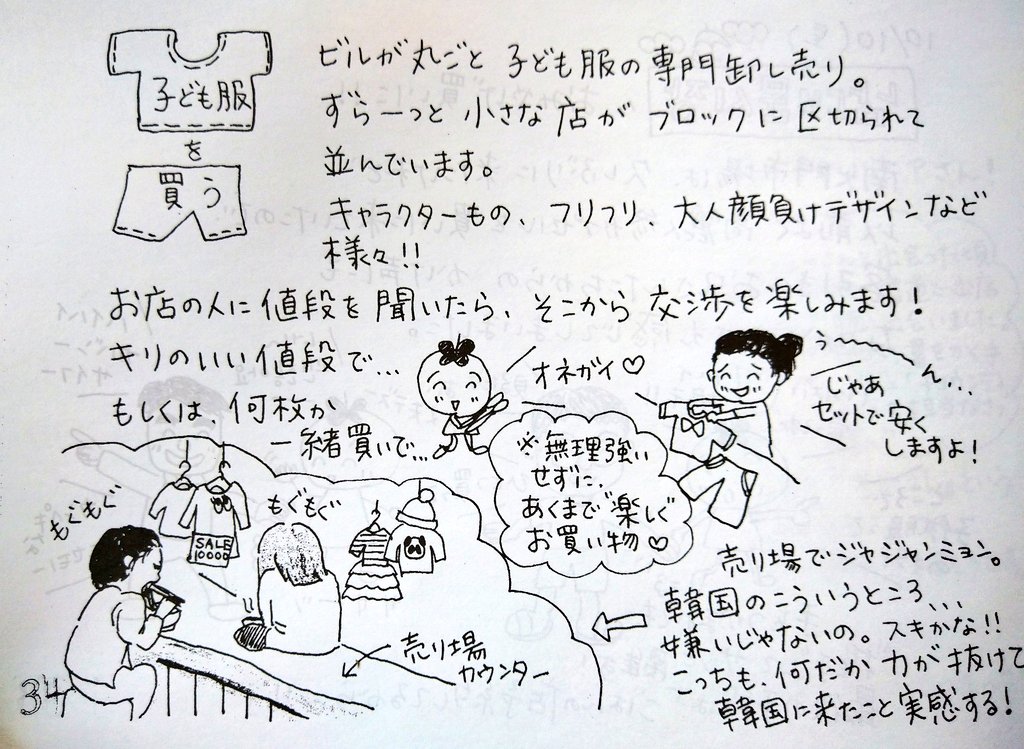 子ども服
を
買う
ビルが丸ごと 子ども服の専門卸し売り。
ずらーっと 小さな店が ブロックに 区切られて
並んでいます。
キャラクターもの、フリフリ、大人顔負けデザインなど
様々!!
お店の人に 値段を 聞いたら、そこから 交渉を 楽しみます!
キリのいい値段で…
もしくは 何枚か
一緒買いで…
オネガイ♡
う〜〜〜ん…
じゃあ
セットで安く
しますよ!
※無理強い
せずに、
あくまで楽しく
お買い物♡
もぐもぐ
もぐもぐ
SALE
10000
売り場
カウンター
売り場でジャジャンミョン。
韓国のこういうところ…
嫌いじゃないの。スキかな!!
こっちも、何だか 力が 抜けて
韓国に来たこと 実感する!
34